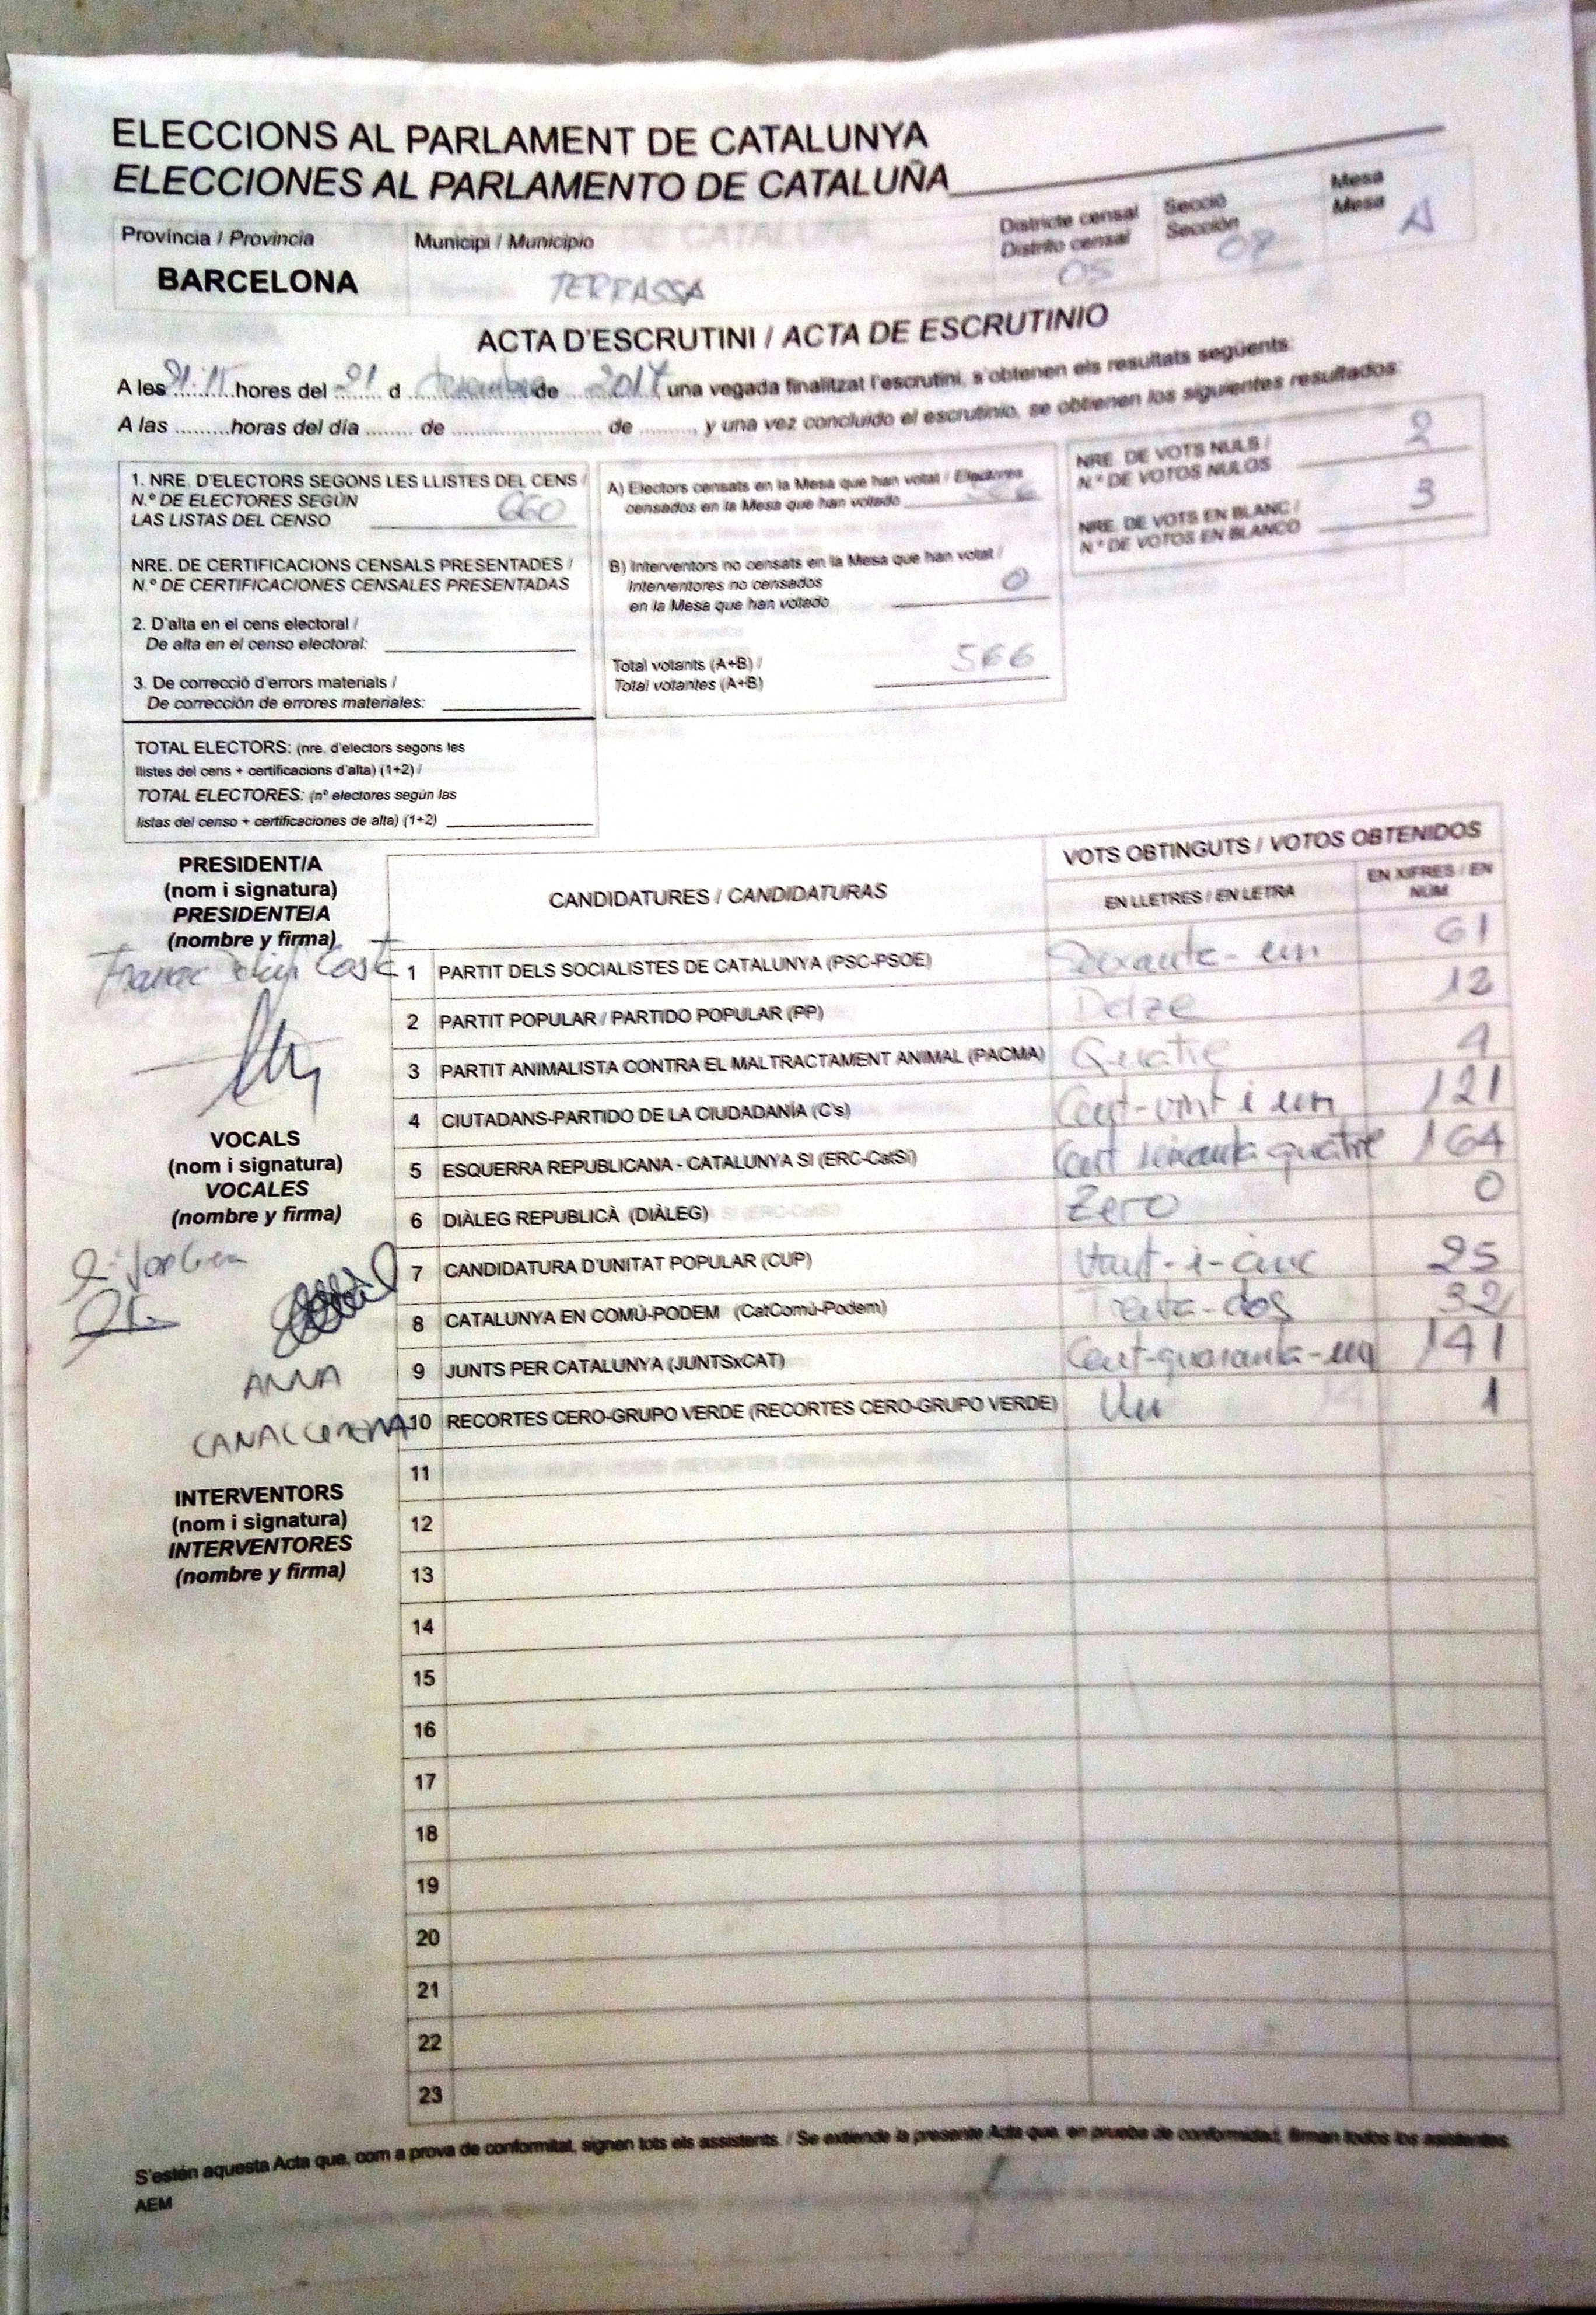 ELECCIONS AL PARLAMENT DE CATALUNYA
ELECCIONES AL PARLAMENTO DE CATALUÑA
Província / Provincia
BARCELONA
Municipi / Municipio
TERRASSA
Districte censal
Distrito censal
05
Secció
Sección
Mesa
Mesa
A
ACTA D'ESCRUTINI / ACTA DE ESCRUTINIO
A les 21:15 hores del 21 d desembre de 2017 una vegada finalitzat l'escrutini, s'obtenen els resultats següents:
A las .........horas del día ........ de ........................ de ........., y una vez concluido el escrutinio, se obtienen los siguientes resultados:
1. NRE. D'ELECTORS SEGONS LES LLISTES DEL CENS /
N.º DE ELECTORES SEGÚN
LAS LISTAS DEL CENSO 660
NRE. DE CERTIFICACIONS CENSALS PRESENTADES /
N.º DE CERTIFICACIONES CENSALES PRESENTADAS
2. D'alta en el cens electoral /
De alta en el censo electoral:
3. De correcció d'errors materials /
De corrección de errores materiales:
TOTAL ELECTORS: (nre. d'electors segons les
llistes del cens + certificacions d'alta) (1+2) /
TOTAL ELECTORES: (nº electores según las
listas del censo + certificaciones de alta) (1+2)
A) Electors censats en la Mesa que han votat / Electores
censados en la Mesa que han votado
B) Interventors no censats en la Mesa que han votat /
Interventores no censados
en la Mesa que han votado 0
Total votants (A+B) /
Total votantes (A+B) 566
NRE. DE VOTS NULS /
N.º DE VOTOS NULOS 2
NRE. DE VOTS EN BLANC /
N.º DE VOTOS EN BLANCO 3
PRESIDENT/A
(nom i signatura)
PRESIDENTE/A
(nombre y firma)
VOCALS
(nom i signatura)
VOCALES
(nombre y firma)
ANNA
INTERVENTORS
(nom i signatura)
INTERVENTORES
(nombre y firma)
CANDIDATURES / CANDIDATURAS
VOTS OBTINGUTS / VOTOS OBTENIDOS
EN LLETRES / EN LETRA
EN XIFRES / EN
NÚM
1 PARTIT DELS SOCIALISTES DE CATALUNYA (PSC-PSOE) Seixanta-un 61
2 PARTIT POPULAR / PARTIDO POPULAR (PP) Dotze 12
3 PARTIT ANIMALISTA CONTRA EL MALTRACTAMENT ANIMAL (PACMA) Quatre 4
4 CIUTADANS-PARTIDO DE LA CIUDADANÍA (C's) Cent-vint i un 121
5 ESQUERRA REPUBLICANA - CATALUNYA SÍ (ERC-CatSí) Cent seixanta quatre 164
6 DIÀLEG REPUBLICÀ (DIÀLEG) Zero 0
7 CANDIDATURA D'UNITAT POPULAR (CUP) Vint-i-cinc 25
8 CATALUNYA EN COMÚ-PODEM (CatComú-Podem) Trenta-dos 32
9 JUNTS PER CATALUNYA (JUNTSxCAT) Cent-quaranta-un 141
10 RECORTES CERO-GRUPO VERDE (RECORTES CERO-GRUPO VERDE) Un 1
11
12
13
14
15
16
17
18
19
20
21
22
23
S'estén aquesta Acta que, com a prova de conformitat, signen tots els assistents. / Se extiende la presente Acta que, en prueba de conformidad, firman todos los asistentes.
AEM